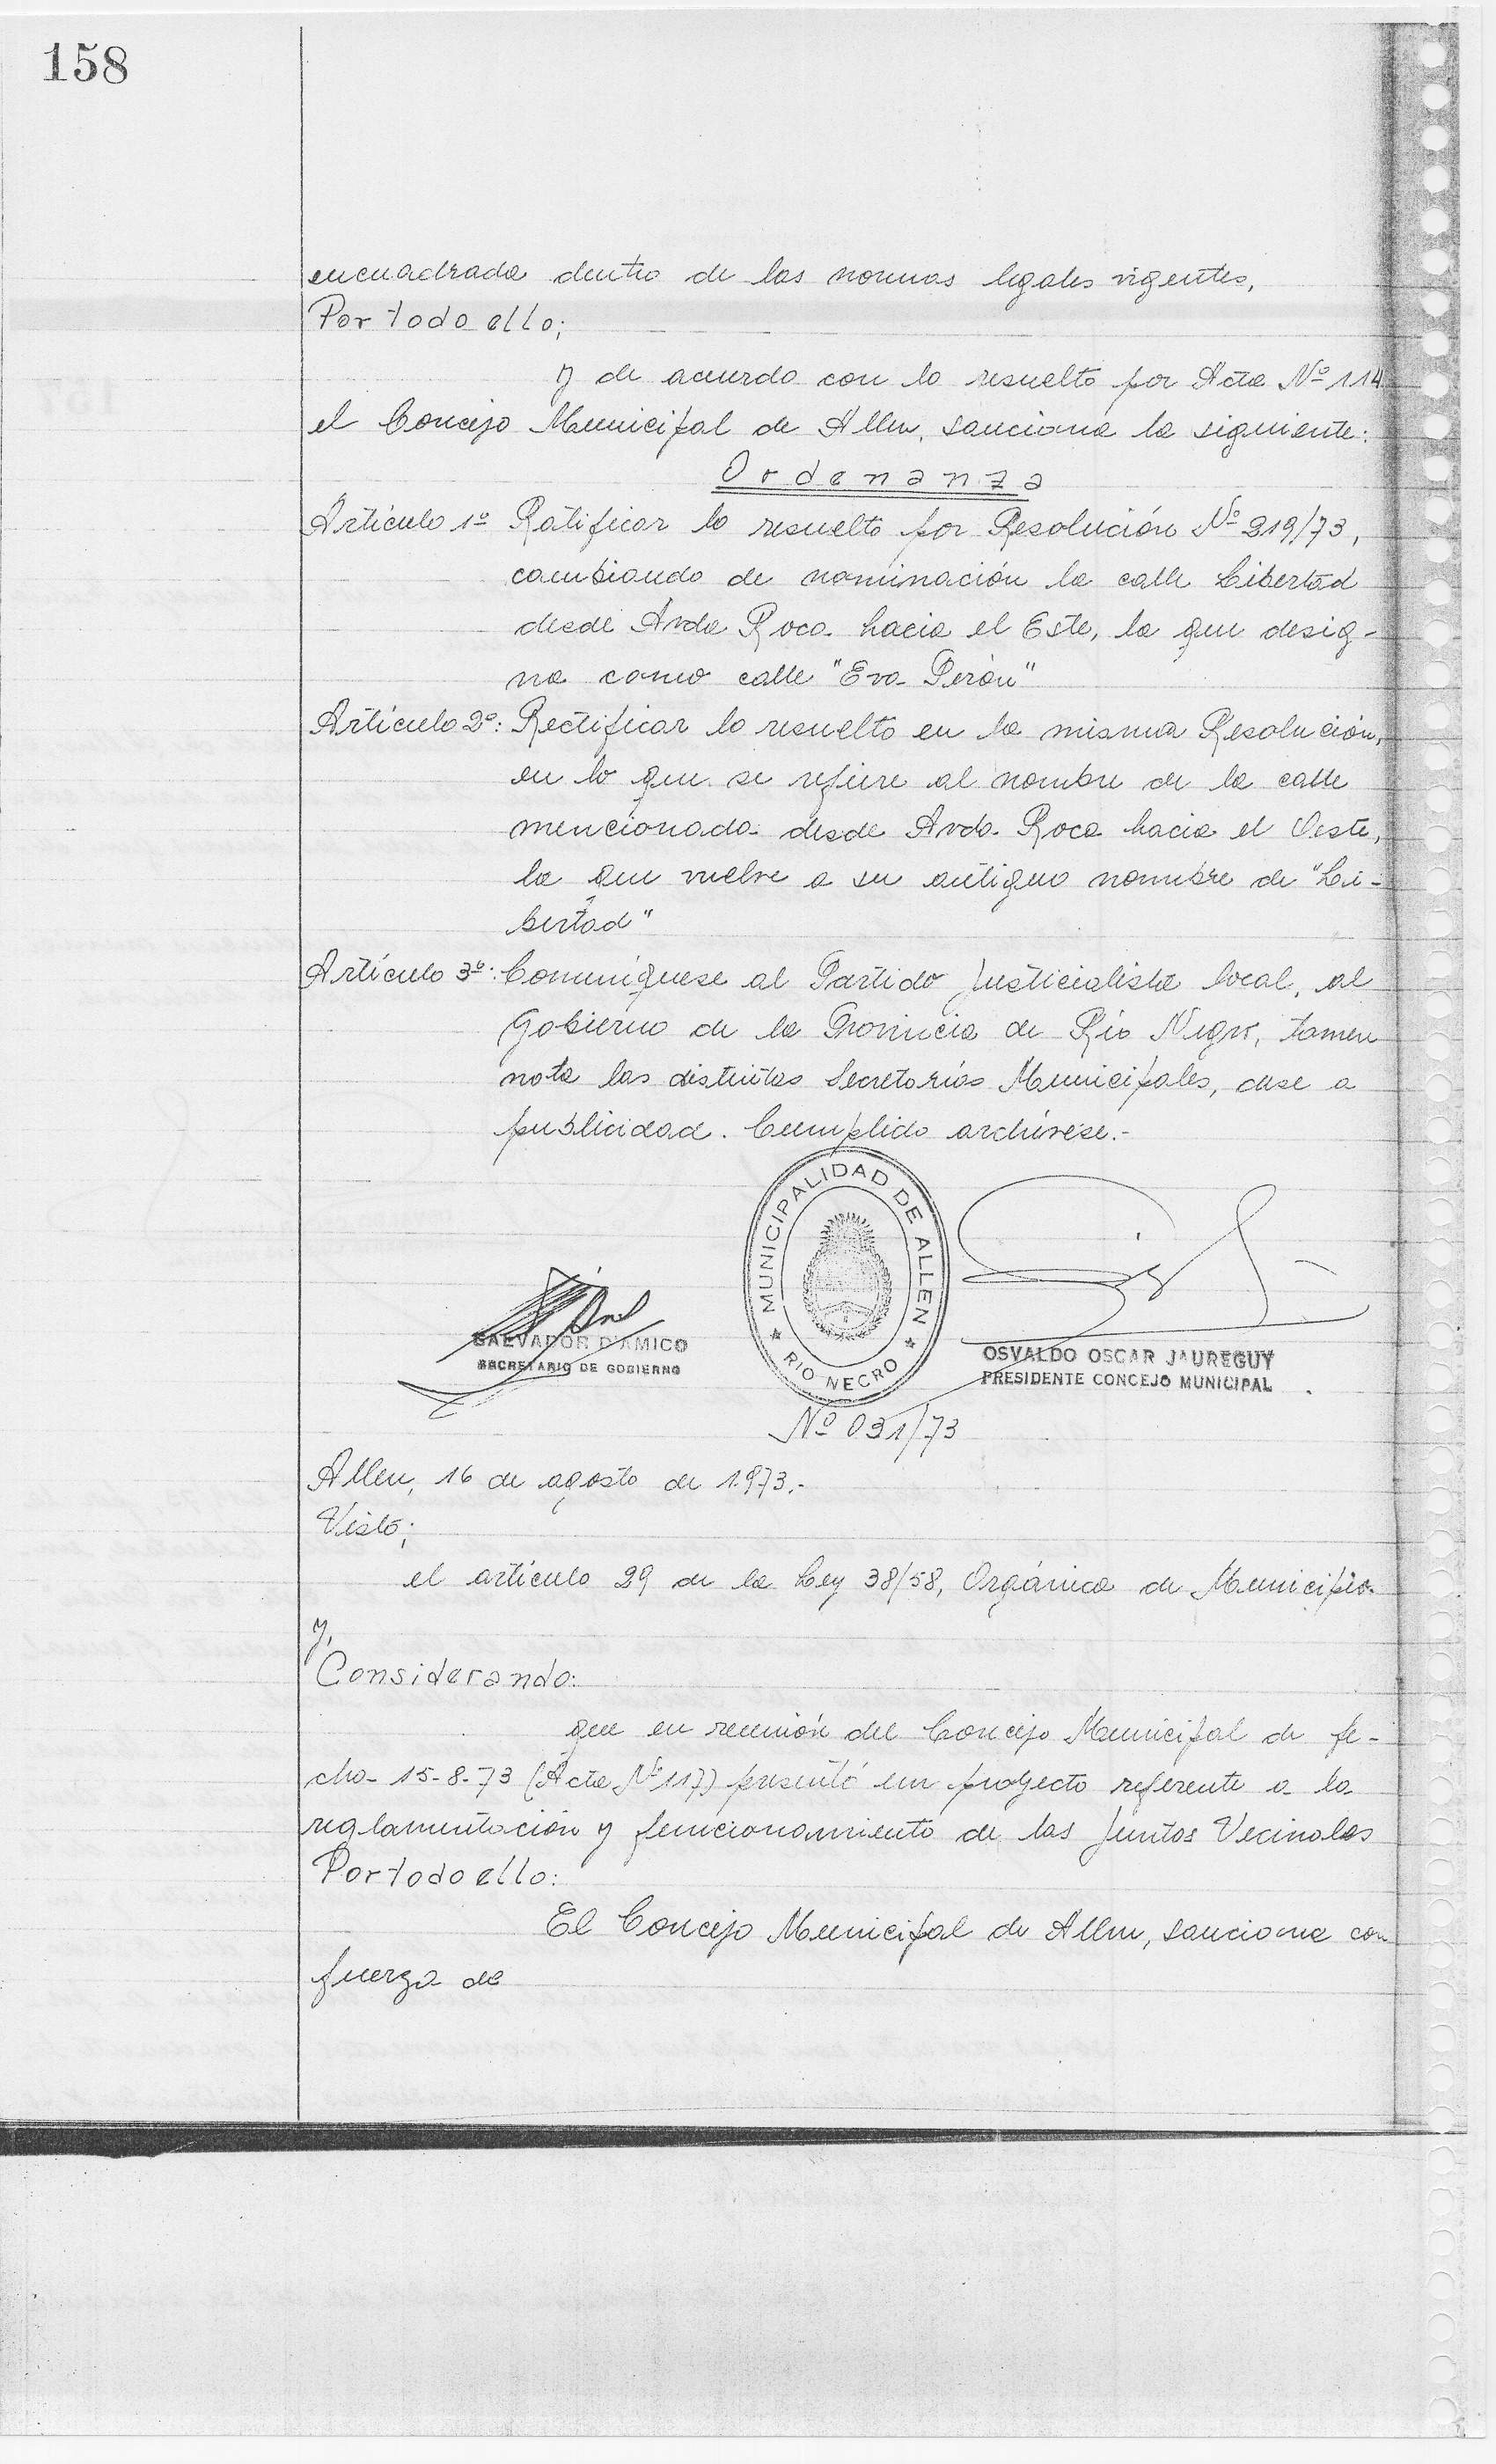 158
encuadrada dentro de las normas legales vigentes,
Por todo ello;
y de acuerdo con lo resuelto por Acta Nº 114
el Concejo Municipal de Allen, sanciona la siguiente:
Ordenanza
Artículo 1º Ratificar lo resuelto por Resolución Nº 219/73,
cambiando de nominación la calle Libertad
desde Avda Roca hacia el Este, la que desig-
na como calle "Eva Perón"
Artículo 2º: Rectificar lo resuelto en la misma Resolución,
en lo que se refiere al nombre de la calle
mencionada desde Avda. Roca hacia el Oeste,
la que vuelve a su antiguo nombre de "Li-
bertad"
Artículo 3º: Comuníquese al Partido Justicialista local, al
Gobierno de la Provincia de Río Negro, tomen
nota las distintas Secretarías Municipales, dese a
publicidad. Cumplido archívese.-
MUNICIPALIDAD DE ALLEN
★ RIO NEGRO ★
SALVADOR D'AMICO
SECRETARIO DE GOBIERNO
OSVALDO OSCAR JAUREGUY
PRESIDENTE CONCEJO MUNICIPAL
Nº 031/73
Allen, 16 de agosto de 1.973.-
Visto;
el artículo 29 de la Ley 38/58, Orgánica de Municipio
y,
Considerando:
que en reunión del Concejo Municipal de fe-
cha 15-8-73 (Acta Nº 117) presentó un proyecto referente a la
reglamentación y funcionamiento de las Juntas Vecinales
Por todo ello:
El Concejo Municipal de Allen, sanciona con
fuerza de